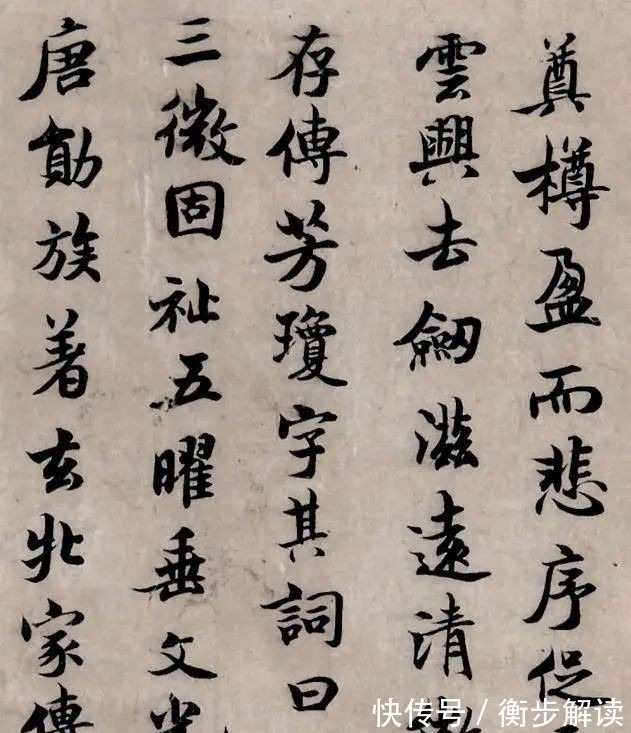 奠樽盈而悲序促
雲興去劔滋遠清
存傳芳瓊字其詞曰
三微固祉五曜垂文
唐勛族著玄牝家傳
快传号 / 衡步解读